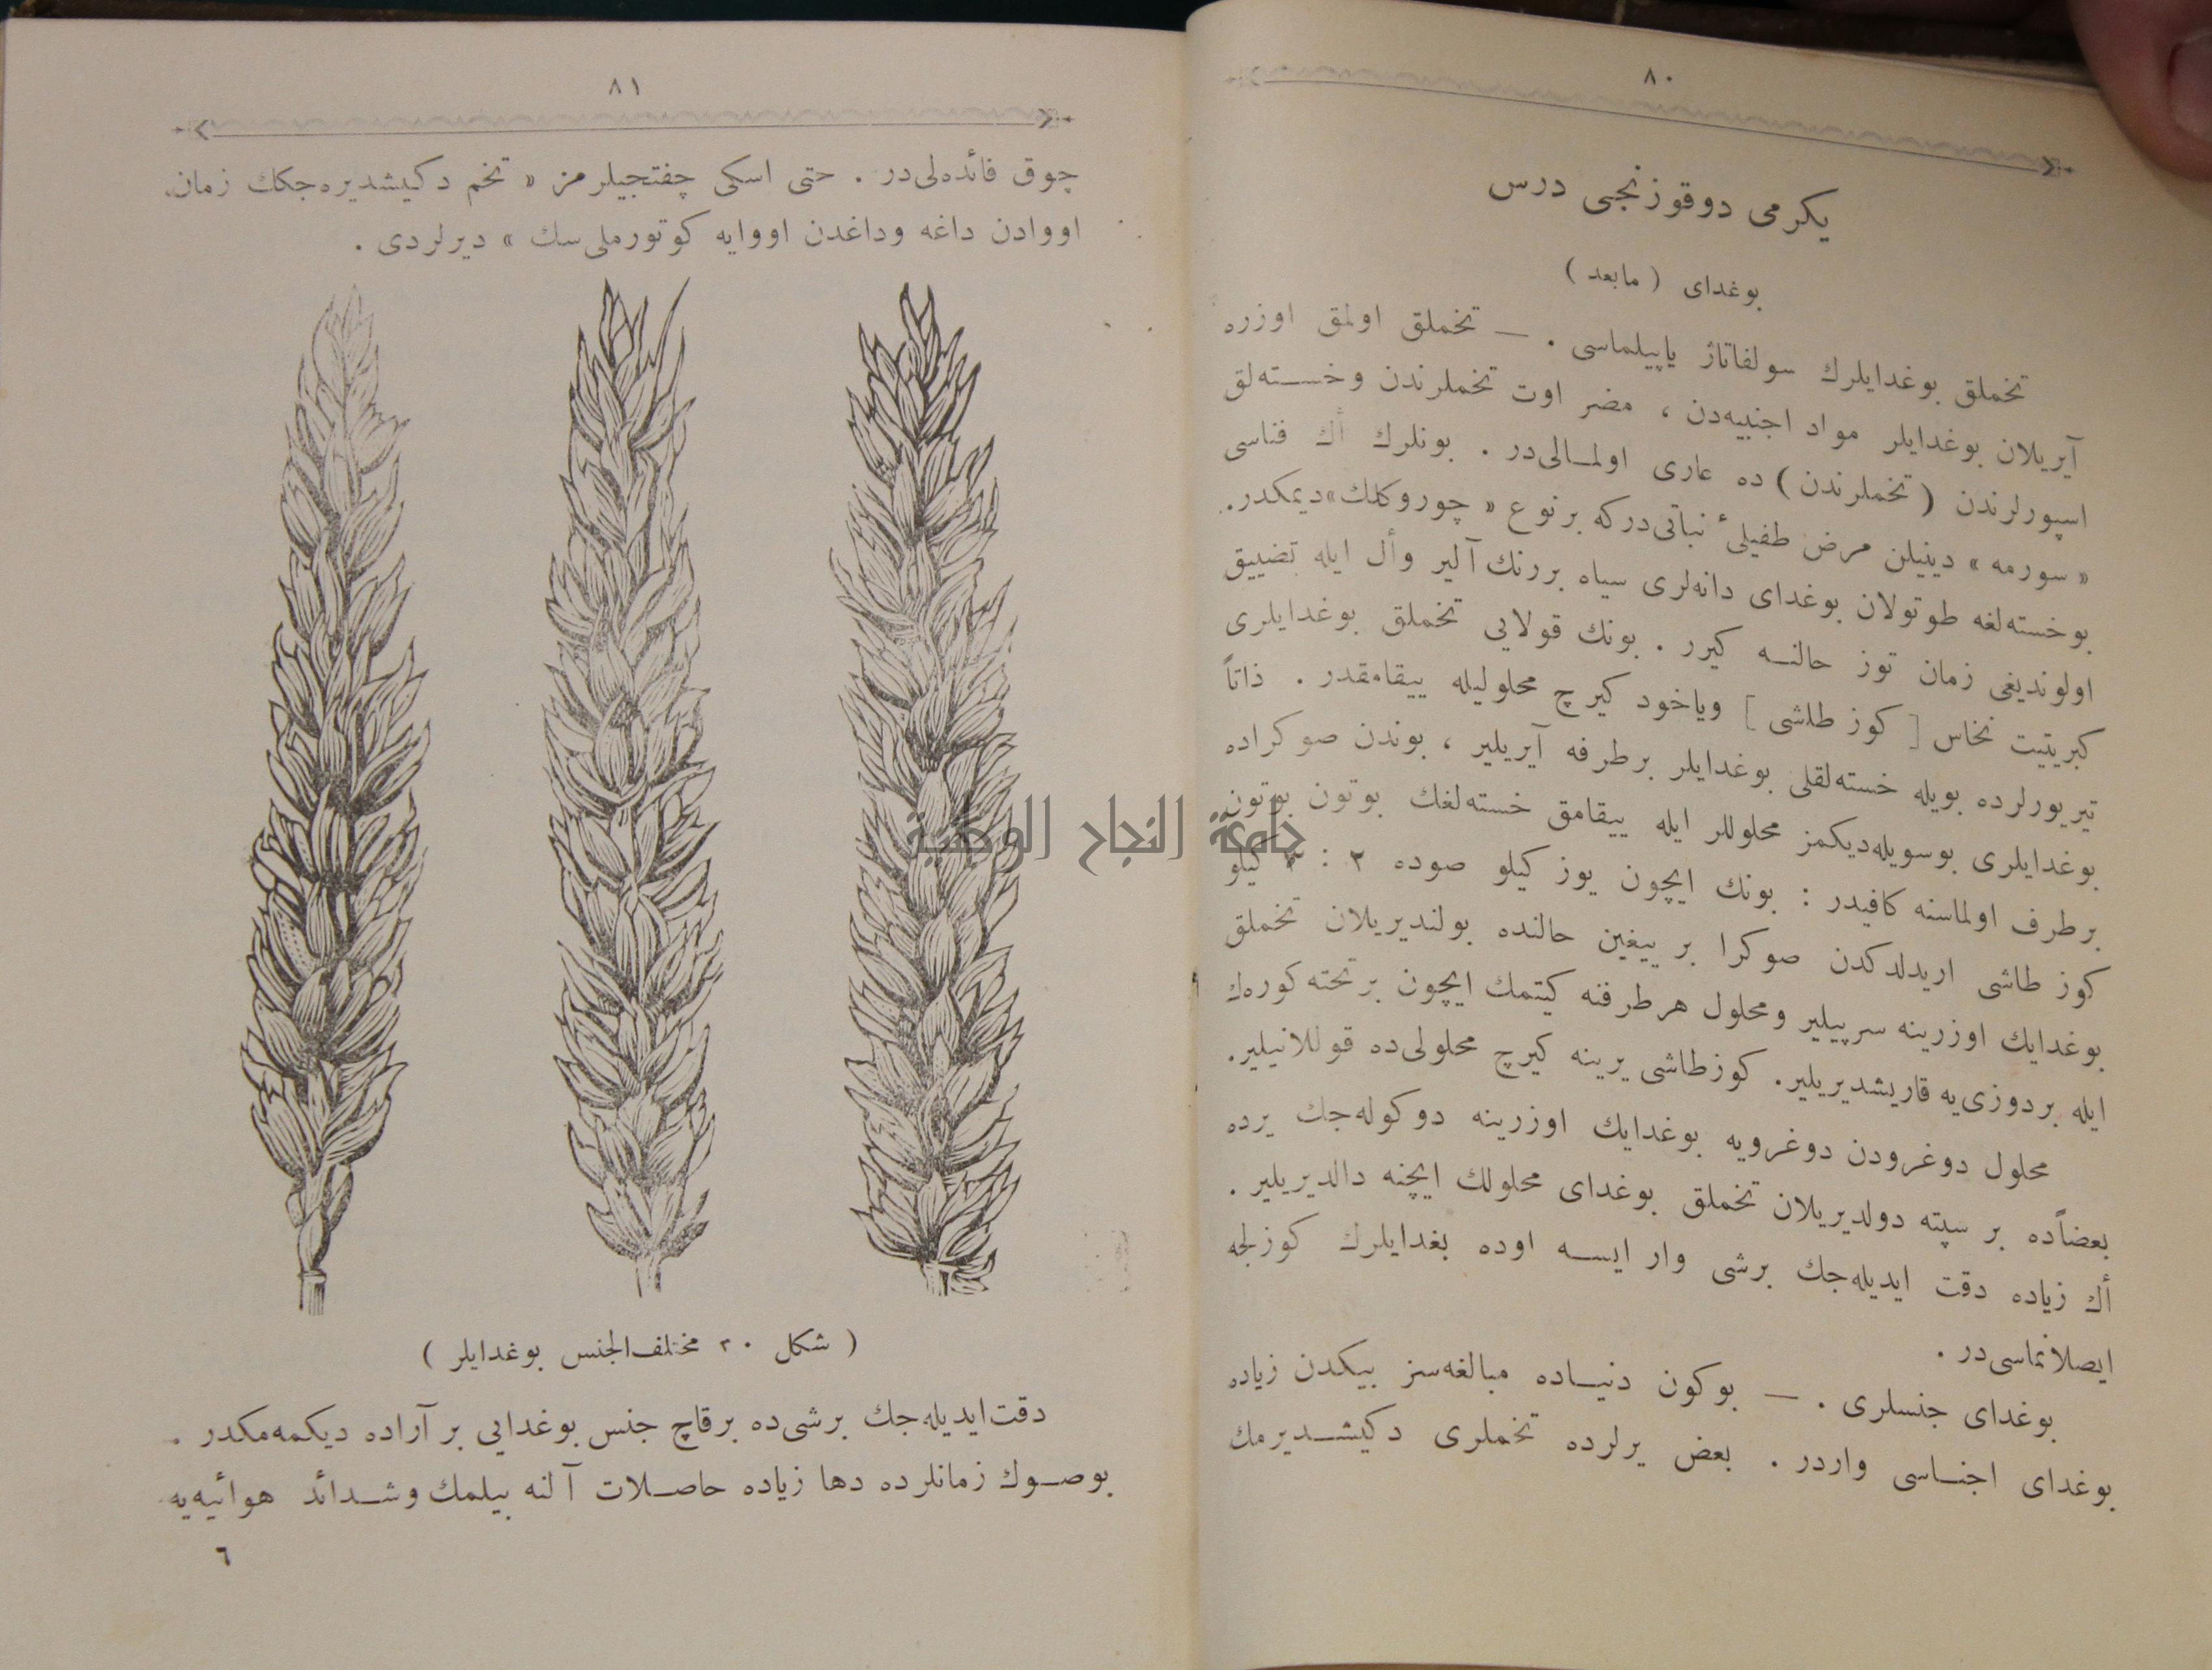 ٨٠
يكرمی دوقوزنجی درس
بوغدای ( مابعد )
تخملق بوغدایلرك سولفاتاژ یاپیلماسی . — تخملق اولمق اوزره
آیریلان بوغدایلر مواد اجنبیه‌دن ، مضر اوت تخملرندن وخسته‌لق
اسپورلرندن ( تخملرندن ) ده عاری اولمالی‌در . بونلرك أك فناسی
« سورمه » دینیلن مرض طفیلیٔ نباتی‌دركه برنوع « چوروكلك » دیمكدر.
بوخسته‌لغه طوتولان بوغدای دانه‌لری سیاه بررنك آلیر وأل ایله تضییق
اولوندیغی زمان توز حالنه كیرر . بونك قولایی تخملق بوغدایلری
كبریتیت نحاس [ كوز طاشی ] ویاخود كیرچ محلولیله ییقامقدر . ذاتاً
تیریورلرده بویله خسته‌لقلی بوغدایلر برطرفه آیریلیر ، بوندن صوكراده
بوغدایلری بوسویله‌دیكمز محلوللر ایله ییقامق خسته‌لغك بوتون بوتون
برطرف اولماسنه كافیدر : بونك ایچون یوز كیلو صوده ٢ : ٣ كیلو
كوز طاشی اریدلدكدن صوكرا بر ییغین حالنده بولندیریلان تخملق
بوغدایك اوزرینه سرپیلیر ومحلول هرطرفنه كیتمك ایچون برتخته كوره‌ك
ایله بردوزی‌یه قاریشدیریلیر. كوزطاشی یرینه كیرچ محلولی‌ده قوللانیلیر.
محلول دوغرودن دوغرویه بوغدایك اوزرینه دوكوله‌جك یرده
بعضاًده بر سپته دولدیریلان تخملق بوغدای محلولك ایچنه دالدیریلیر .
أك زیاده دقت ایدیله‌جك برشی وار ایسه اوده بغدایلرك كوزلجه
ایصلانماسی‌در .
بوغدای جنسلری . — بوكون دنیاده مبالغه‌سز بیكدن زیاده
بوغدای اجناسی واردر . بعض یرلرده تخملری دكیشدیرمك
٨١
چوق فائده‌لی‌در . حتی اسكی چفتجیلرمز « تخم دكیشدیره‌جكك زمان
اووادن داغه وداغدن اووایه كوتورملی‌سك » دیرلردی .
( شكل ٢٠ مختلف‌الجنس بوغدایلر )
دقت‌ایدیله‌جك برشی‌ده برقاچ جنس بوغدایی بر آراده دیكمه‌مكدر .
بوصوك زمانلرده دها زیاده حاصلات آلنه بیلمك وشدائد هوائیه‌یه
٦
جامعة النجاح الوطنية